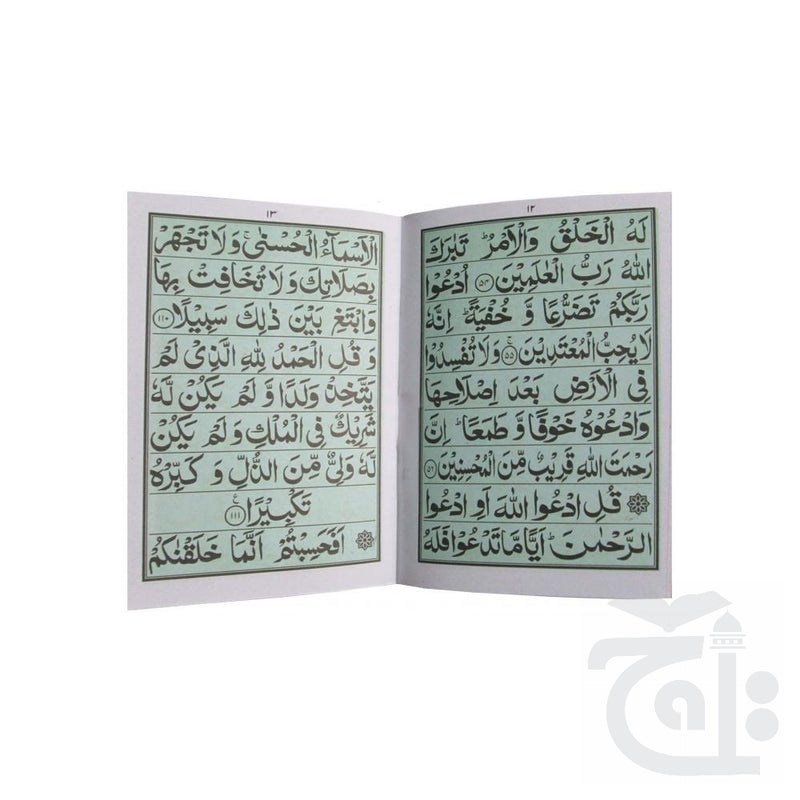 ١٢
لَهُ الْخَلْقُ وَالْاَمْرُ ؕ تَبٰرَكَ
اللّٰهُ رَبُّ الْعٰلَمِيْنَ ﴿۵۴﴾ اُدْعُوْا
رَبَّكُمْ تَضَرُّعًا وَّ خُفْيَةً ؕ اِنَّهٗ
لَا يُحِبُّ الْمُعْتَدِيْنَ ۚ ﴿۵۵﴾ وَلَا تُفْسِدُوْا
فِي الْاَرْضِ بَعْدَ اِصْلَاحِهَا
وَادْعُوْهُ خَوْفًا وَّ طَمَعًا ؕ اِنَّ
رَحْمَتَ اللّٰهِ قَرِيْبٌ مِّنَ الْمُحْسِنِيْنَ ﴿۵۶﴾
۞ قُلِ ادْعُوا اللّٰهَ اَوِ ادْعُوا
الرَّحْمٰنَ ؕ اَيًّا مَّا تَدْعُوْا فَلَهُ
١٣
الْاَسْمَآءُ الْحُسْنٰى ۚ وَ لَا تَجْهَرْ
بِصَلَاتِكَ وَ لَا تُخَافِتْ بِهَا
وَابْتَغِ بَيْنَ ذٰلِكَ سَبِيْلًا ﴿۱۱۰﴾
وَ قُلِ الْحَمْدُ لِلّٰهِ الَّذِيْ لَمْ
يَتَّخِذْ وَلَدًا وَّ لَمْ يَكُنْ لَّهٗ
شَرِيْكٌ فِي الْمُلْكِ وَ لَمْ يَكُنْ
لَّهٗ وَلِيٌّ مِّنَ الذُّلِّ وَ كَبِّرْهُ
تَكْبِيْرًا ۧ ﴿۱۱۱﴾
۞ اَفَحَسِبْتُمْ اَنَّمَا خَلَقْنٰكُمْ
تاج